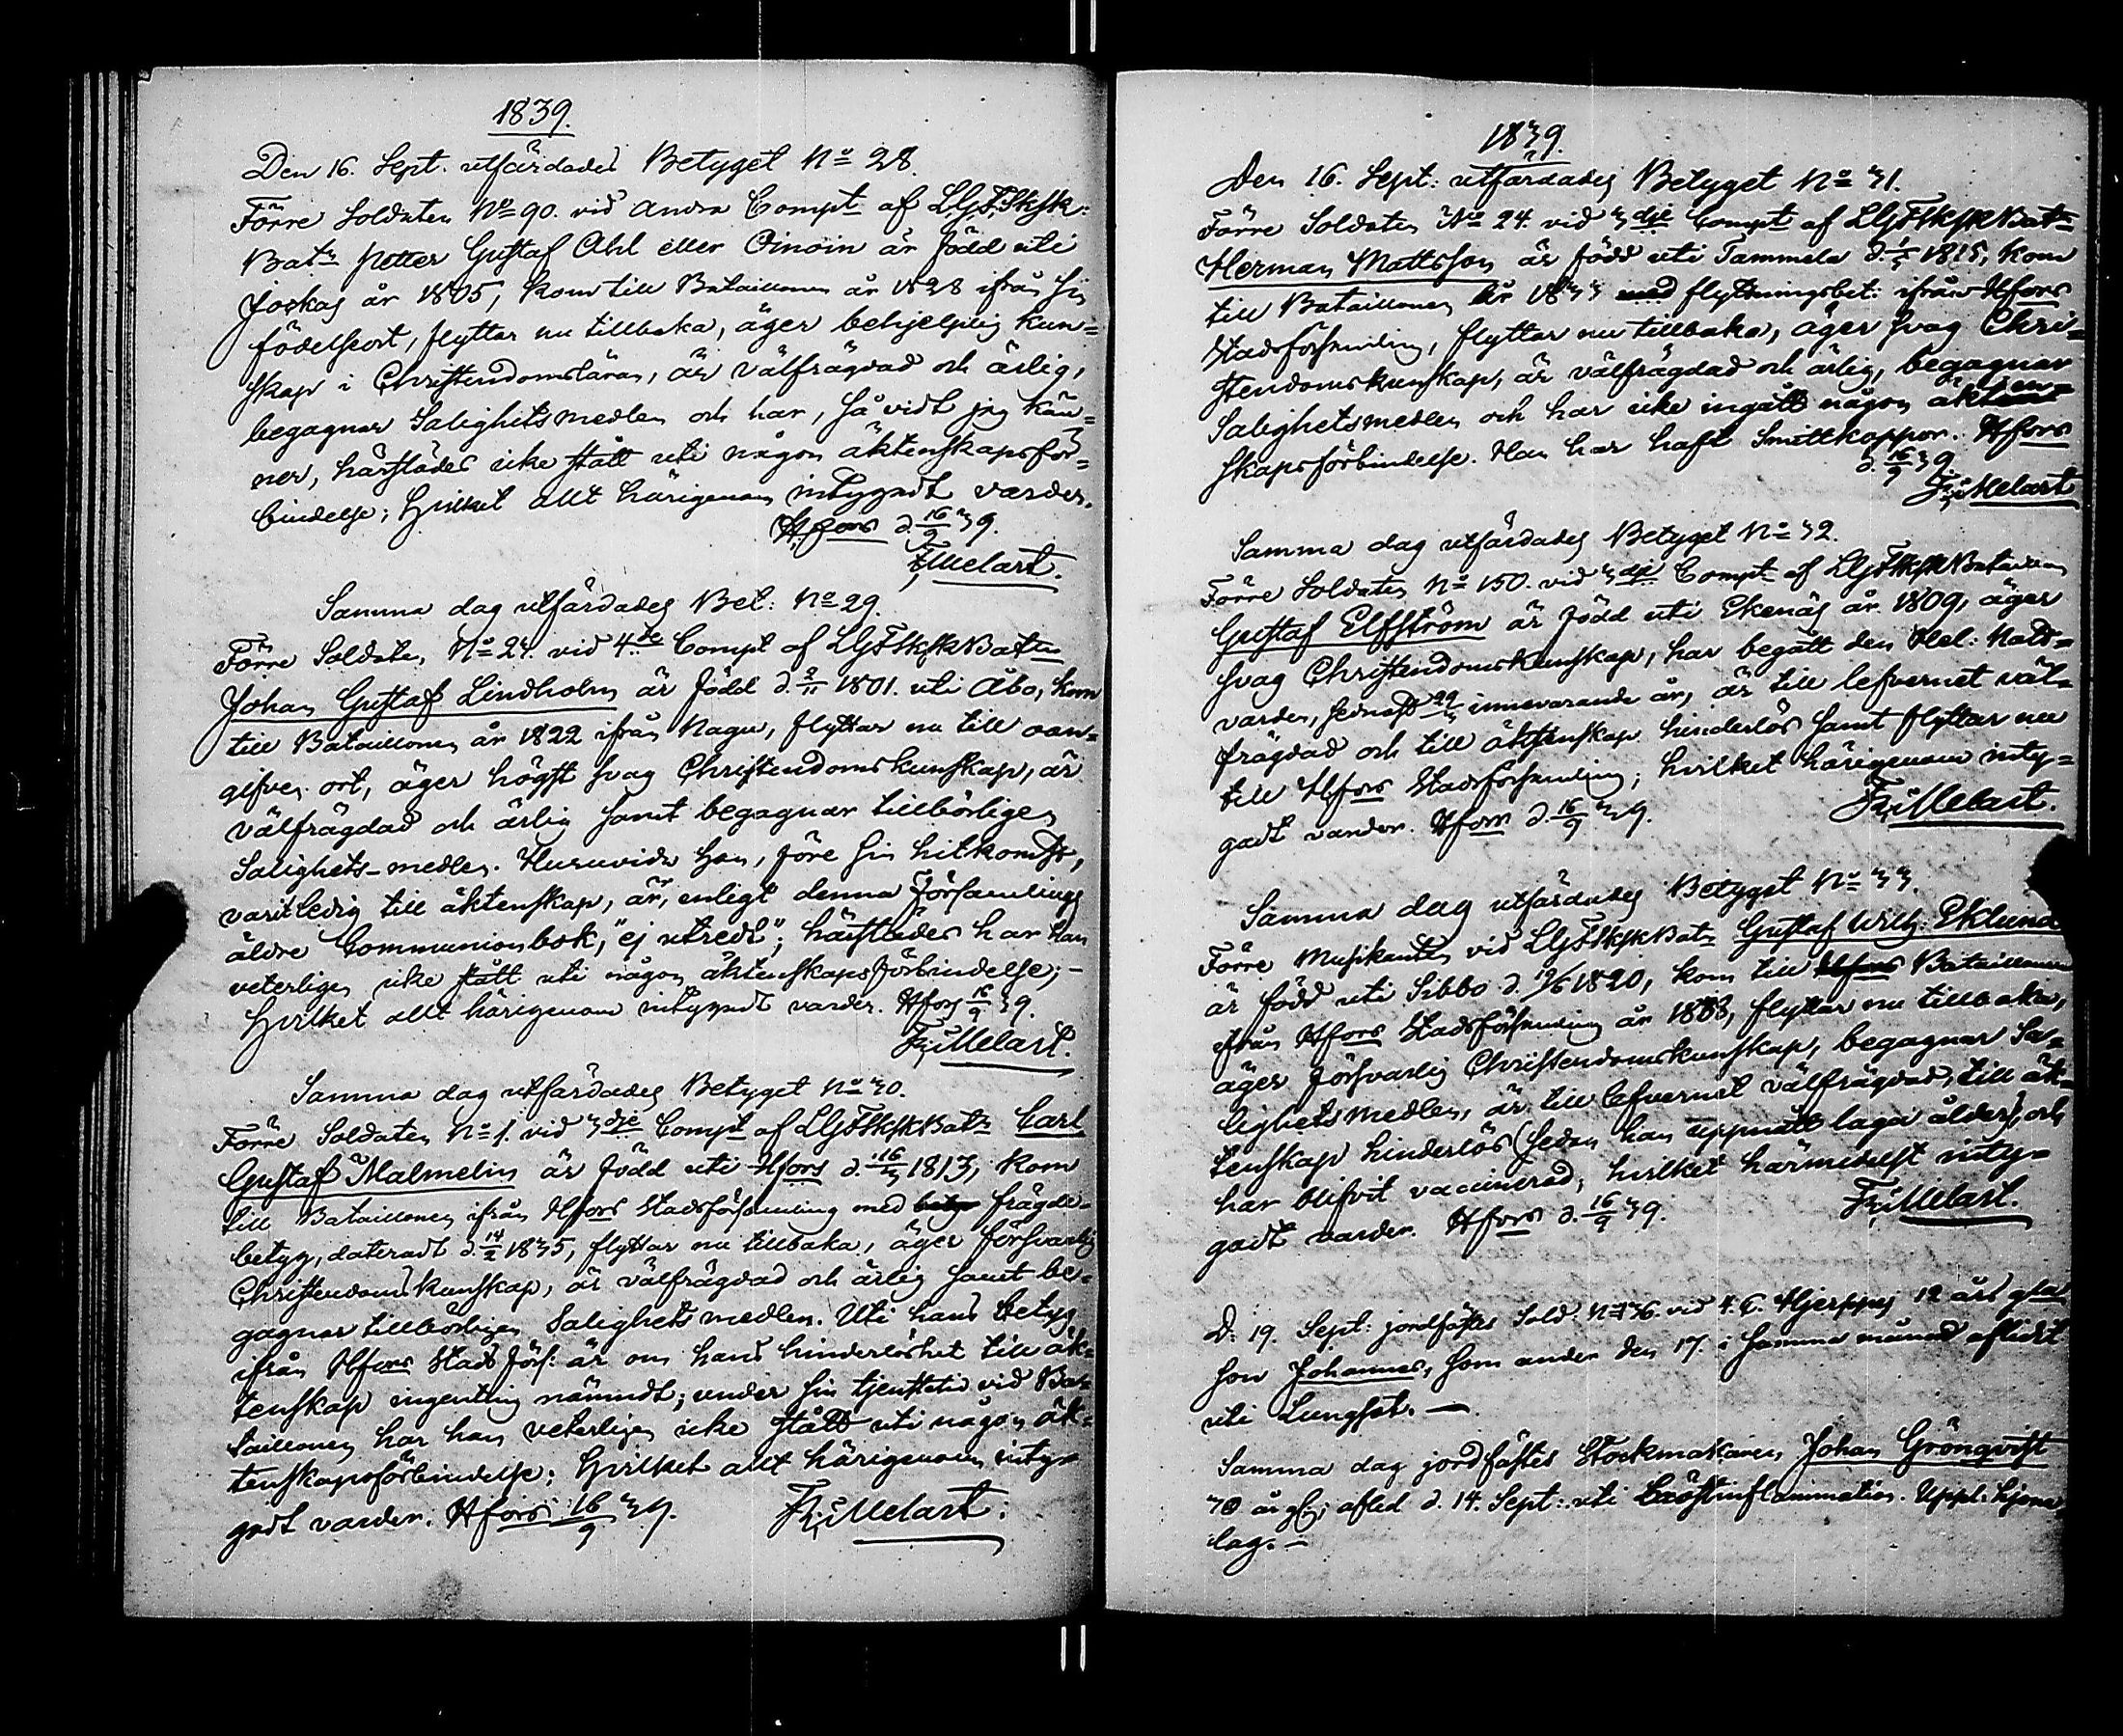 1839.
Den 16. Sept. utfärdades Betyget No 28.
Förre Soldaten No 90. vid Andra Compt af LGFSksk:
Batn Petter Gustaf Ahl eller Oinoin är född uti
Jockas år 1805, kom till Bataillonen år 1828 ifrån sin
födelseort, flyttar nu tillbaka, äger behjelplig kun=
skap i Christendomsläran, är välfrägdad och ärlig,
begagnar Salighetsmedlen och har, så vidt jag kän=
ner, härstädes icke stått uti någon äktenskapsför=
bindelse; Hvilket allt härigenom intygadt varder.
Hfors d. 16/9 39.
Fr: Melart.
Samma dag utfärdades Bet: No 29.
Förre Soldaten No 24. vid 4.de Compt af LGFSkskBatn
Johan Gustaf Lindholm är född d. 2/11 1801. uti Åbo, kom
till Bataillonen år 1822 ifrån Nagu, flyttar nu till oan=
gifven ort, äger högst svag Christendomskunskap, är
välfrägdad och ärlig samt begagnar tillbörligen
Salighets-medlen. Huruvida han, före sin hitkomst,
varit ledig till äktenskap, är, enligt denna Församlings
äldre Communionbok, "ej utredt"; härstädes har han
veterligen icke stått uti någon äktenskapsförbindelse; -
Hvilket allt härigenom intygadt varder. Hfors 16/9 39.
Fr: Melart.
Samma dag utfärdades Betyget No 30.
Förre Soldaten No 1. vid 3dje Compt af LGFSkskBatn Carl
Gustaf Malmelin är född uti Hfors d. 16/3 1813, kom
till Bataillonen ifrån Hfors Stadsförsamling med frägde-
betyg, dateradt d. 14/2 1835, flyttar nu tillbaka, äger försvarlig
Christendomskunskap, är välfrägdad och ärlig samt be=
gagnar tillbörligen Salighetsmedlen. Uti hans betyg
ifrån Hfors Stads förs: är om hans hinderlöshet till äk=
tenskap ingenting nämndt; under sin tjenstetid vid Ba=
taillonen har han veterligen icke stått uti någon äk=
tenskapsförbindelse; Hvilket allt härigenom inty=
gadt varder. Hfors 16/9 39. Fr: Melart.
1839.
Den 16. Sept: utfärdades Betyget No 31.
Förre Soldaten No 24. vid 3dje Compt af LGFSkskBatn
Herman Mattsson är född uti Tammela d. 1/3 1815, kom
till Bataillonen år 1833 med flyttningsbet: ifrån Hfors
Stadsförsamling, flyttar nu tillbaka, äger svag Chri=
stendomskunskap, är välfrägdad och ärlig, begagnar
Salighetsmedlen och har icke ingått någon äkten=
skapsförbindelse. Han har haft Smittkoppor. Hfors
d. 16/9 39
Fr: Melart
Samma dag utfärdades Betyget No 32.
Förre Soldaten No 150. vid 3dje Compt af LGFSkskBataillon
Gustaf Elfström är född uti Ekenäs år 1809, äger
svag Christendomskunskap, har begått den Hel: Natt=
varden, sednast 29/3 innevarande år, är till lefvernet väl=
frägdad och till äktenskap hinderlös samt flyttar nu
till Hfors Stadsförsamling; hvilket härigenom inty=
gadt varder. Hfors d. 16/9 39. Fr: Melart.
Samma dag utfärdades Betyget No 33.
Förre Musikanten vid LGFSkskBatn Gustaf Wilh: Eklund
är född uti Sibbo d. 19/6 1820, kom till Bataillonen
ifrån Hfors Stadsförsamling år 1833, flyttar nu tillbaka,
äger försvarlig Christendomskunskap, begagnar Sa=
lighetsmedlen, är till lefvernet välfrägdad, till äk=
tenskap hinderlös (sedan han uppnått laga ålder), och
har blifvit vaccinerad; hvilket härmedelst inty=
gadt varder. Hfors d. 16/9 39. Fr: Melart.
D: 19. Sept: jordfästes Sold: No 36. vid 4. C. Hjerppes 12 års gla
son Johannes, som andra den 17. i samma månad aflidit
uti Lungsot. -
Samma dag jordfästes Stockmakaren Johan Grönqvist
70 år gl; afled d. 14. Sept: uti Bröstinflammation. Uppl:
lag. -